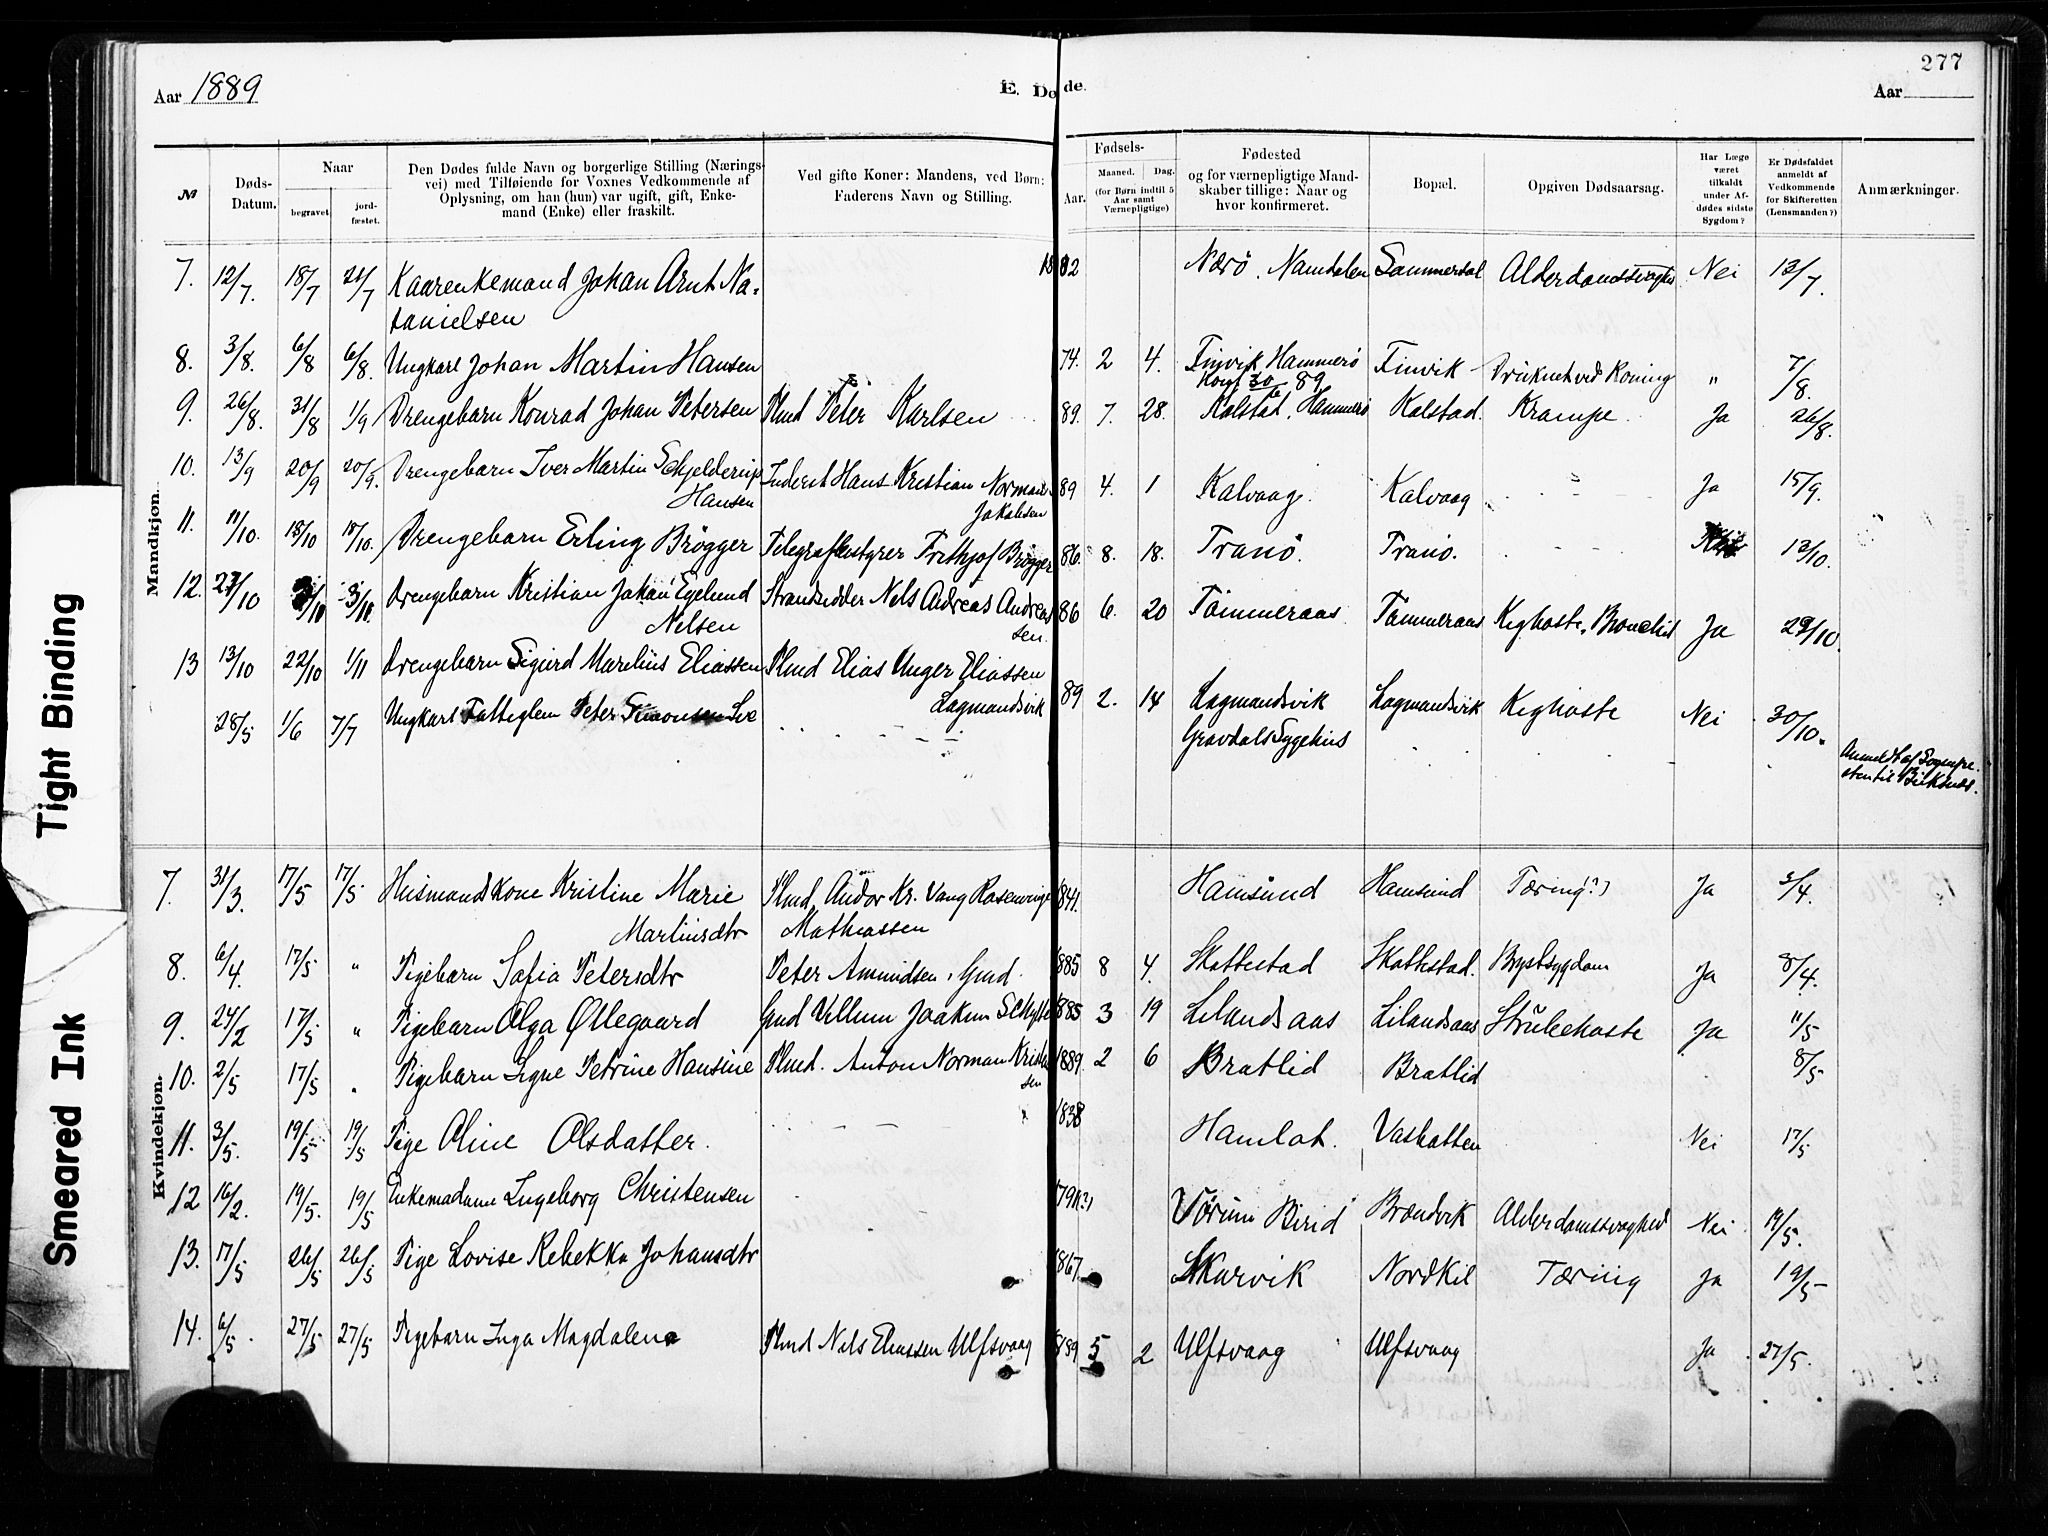 277
Aar 1889
E. Dø de.
Aar
№
Døds-Datum.
Naar
begravet
jord-fæstet.
Den Dødes fulde Navn og borgerlige Stilling (Nærings-
vei) med Tilføiende for Voxnes Vedkommende af
Oplysning, om han (hun) var ugift, gift, Enke-
mand (Enke) eller fraskilt.
Ved gifte Koner: Mandens, ved Børn:
Faderens Navn og Stilling.
Fødsels-
Aar.
Maaned.
Dag.
(for Børn indtil 5
Aar samt
Værnepligtige)
Fødested
og for værnepligtige Mand-
skaber tillige: Naar og
hvor konfirmeret.
Bopæl.
Opgiven Dødsaarsag.
Har Læge
været
tilkaldt
under Af-
dødes sidste
Sygdom?
Er Dødsfaldet
anmeldt af
Vedkommende
for Skifteretten
(Lensmanden?)
Anmærkninger.
Mandkjøn.
7. 12/7. 18/7 21/7 Kaarenkemand Johan Arnt Na= Nærö. Namdalen Sommersdal Alderdomssvaghed Nei 13/7.
tanielsen
8. 3/8. 6/8 6/8. Ungkarl Johan Martin Hansen 74. 2 4. Finvik Hammerö Finvik Druknet ved Roning " 7/8.
Konf 30/6 89
9. 26/8. 31/8 1/9 Drengebarn Konrad Johan Petersen Plmd Peter Karlsen 89. 7. 28. Kalstad, Hammerö Kalstad. Krampe. Ja 26/8.
10. 13/9 20/9 20/9. Drengebarn Iver Martin Schjelderup Inderst Hans Kristian Norman 89 4. 1 Kalvaag. Kalvaag Ja 15/9.
Hansen Jakobsen
11. 11/10. 18/10 18/10. Drengebarn Erling Brøgger Telegrafbestyrer Frithjof Brøgger 86. 8. 18. Tranö. Tranö. 13/10.
12. 27/10 3/11. Drengebarn Kristian Johan Egelund Strandsidder Nels Andreas Andreas 86 6. 20 Tömmeraas Tömmeraas Kighoste, Bronchit Ja 29/10.
Nelsen sen.
13 13/10 22/10 1/11 Drengebarn Sigurd Marelius Eliassen Plmd Elias Unger Eliassen 89 2. 14 Lagmandsvik Lagmandsvik Kighoste Nei 30/10.
Lagmandsvik
28/5 1/6 7/7 Ungkarl Fattiglem Peter Simonsen Gravdals Sygehus
Anmeldt af Sognepre-
sten til Buksnes.
Kvindekjøn.
7. 31/3. 17/5 17/5 Husmandskone Kristine Marie Plmd. Andor Kr. Vang Rosenvinge 1841. Hamsund Hamsund Tæring(?) Ja 3/4.
Martinsdtr Mathiassen
8. 6/4. 17/5 " Pigebarn Sofia Petersdtr Peter Amundsen, Gmd 1885 8 4. Skottestad Skottestad. Brystsygdom Ja 8/4.
9. 24/2 17/5 " Pigebarn Olga Øllegaard Gmd Villum Joakim Schytte 1885 3 19 Lilandsaas Lilandsaas Strubehoste Ja 11/5
10. 2/5 17/5 " Pigebarn Signe Petrine Hansine Plmd. Anton Norman Kristen 1889. 2 6 Bratlid Bratlid 8/5
sen
11. 3/5. 19/5 19/5 Pige Oline Olsdatter. 1838 Hamlot. Vashatten Nei 17/5
12 16/2. 19/5. 19/5 Enkemadame Ingeborg Christensen Birid Brændvik Alderdomssvaghed Nei 19/5.
13. 17/5 26/5 26/5 Pige Lovise Rebekka Johansdtr 1867 Skarvik Nordkil Tæring Ja 19/5
14. 6/5. 27/5 27/5 Pigebarn Inga Magdalena Plmd Nils Eliassen Ulfsvaag 1889 5 2 Ulfsvaag Ulfsvaag Ja 27/5.
Tight Binding
Smeared Ink